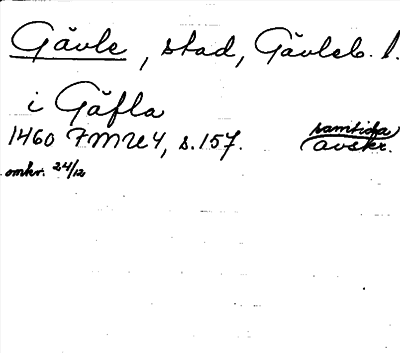 Gävle, stad, Gävleb. l.
i Gäfla
1460 FMU 4, s. 157. samtida avskr.
omkr. 24/12